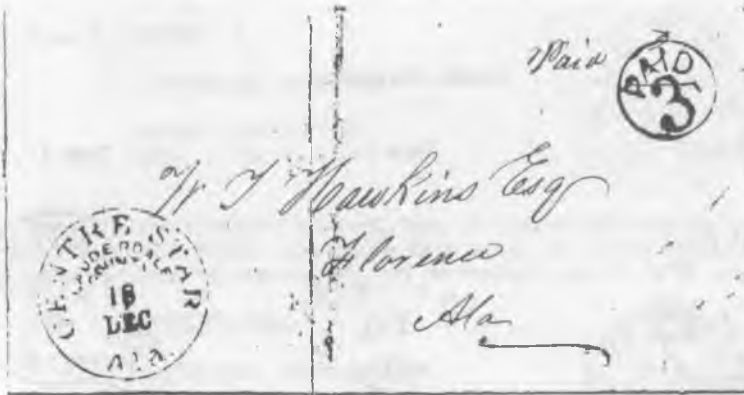 Paid
PAID
3
W T Hawkins Esq
Florence
Ala
CENTRE STAR
LAUDERDALE
COUNTY
18
DEC
Ala.